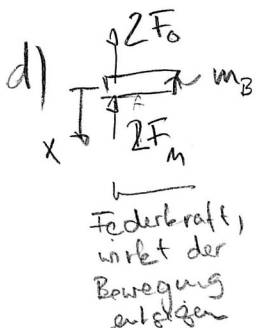 2F₀
d)
m_B
x
2F_M
Federkraft,
wirkt der
Bewegung
entgegen